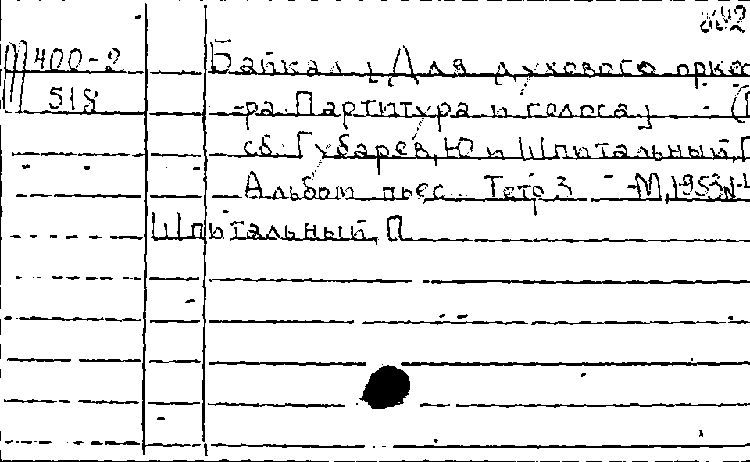 400-2 Байкал. Для духового оркес
518 -ра. Партитура и голоса. - (
сб. Губарев, Ю и Шпитальный, П
Альбом пьес. Тетр 3 -М, 1953
Шпитальный, П